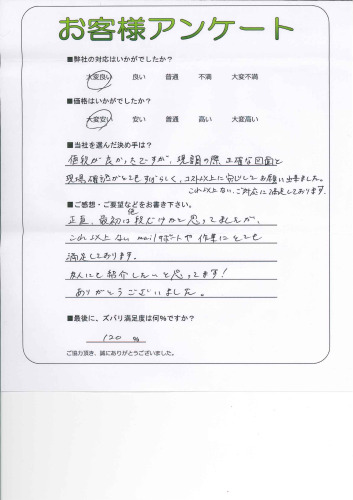 お客様アンケート
■弊社の対応はいかがでしたか?
大変良い 良い 普通 不満 大変不満
■価格はいかがでしたか?
大変安い 安い 普通 高い 大変高い
■当社を選んだ決め手は?
価格が良かったですが、現調の際、正確な図面と
現場確認がとてもすばらしく、コスト以上に安心してお願い出来ました。
これ以上ない、ご対応に満足しております。
■ご感想・ご要望などをお書き下さい。
正直、最初は値段だけかと思ってましたが、
これ以上ないmailサポートや作業にとても
満足しております。
友人にも紹介したいと思ってます!
ありがとうございました。
■最後に、ズバリ満足度は何%ですか?
120 %
ご協力頂き、誠にありがとうございました。